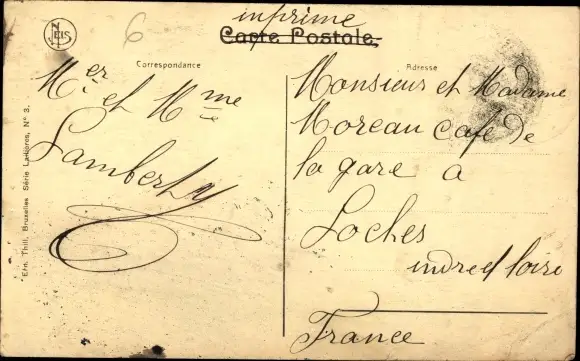 imprime
Carte Postale
6
NELS
Correspondance
Adresse
Mer et Mme
Lamberty
Monsieur et Madame
Moreau café de
la gare à
Loches
indre et loire
France
Ern. Thill, Bruxelles Série Laitières, N° 3.